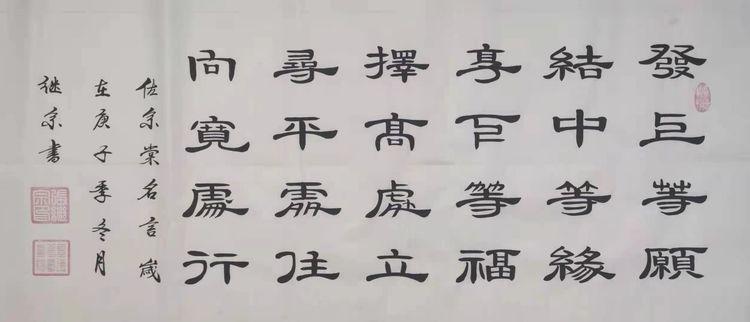 發上等願
結中等緣
享下等福
擇高處立
尋平處住
向寬處行
佐宗棠名言歲
在庚子季冬月
继宗書